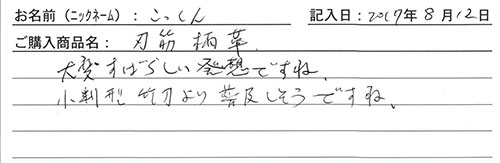 お名前（ニックネーム）：こっしん 記入日：2017年8月12日
ご購入商品名：刃筋柄革.
大変すばらしい発想ですね.
小判型竹刀より普及しそうですね.